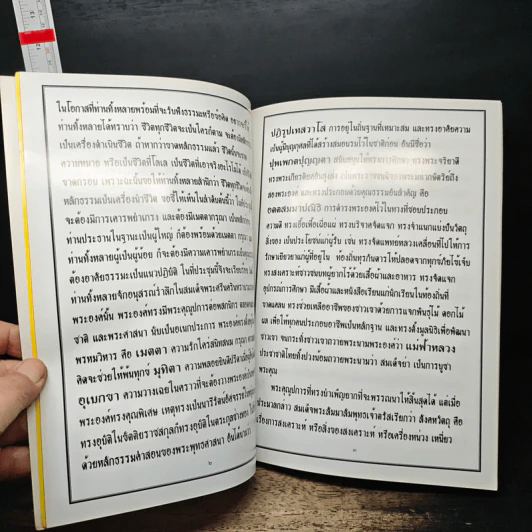 ในโอกาสที่ท่านทั้งหลายพร้อมที่จะรับฟังธรรมหรือข้อคิด
ท่านทั้งหลายได้ทราบว่า ชีวิตทุกชีวิตจะเป็นใครก็ตาม จะต้อง
เป็นเครื่องดำเนินชีวิต ถ้าหากว่าขาดหลักธรรมแล้ว ชีวิตนั้น
ความหมาย หรือเป็นชีวิตที่โลเล เป็นชีวิตที่เอาจริงอะไรไม่ได้
ขาดกรอบ เพราะฉะนั้นขอให้ท่านทั้งหลายสำนึกว่า ชีวิตทุกชีวิต
หลักธรรมเป็นเครื่องนำชีวิต ขอชี้ให้เห็นในลำดับต้นนี้ว่า
จะต้องมีการเคารพยำเกรง และต้องมีเมตตากรุณา
ท่านประธานในฐานะเป็นผู้ใหญ่ ก็ต้องพร้อมด้วยเมตตา กรุณา
ท่านทั้งหลายผู้เป็นผู้น้อย ก็จะต้องมีความเคารพยำเกรง
ต้องอาศัยธรรมะเป็นแนวปฏิบัติ ในที่ประชุมนี้จึงจะเรียบร้อย
ท่านทั้งหลายจักอนุสรณ์รำลึกในสมเด็จพระศรีนครินทรา
พระองค์นั้น พระองค์ทรงมีพระคุณูปการต่อพสกนิกร
ชาติ และพระศาสนา นับเป็นอเนกประการ พระองค์ทรง
พรหมวิหาร คือ เมตตา ความรักใคร่สนิทสนม กรุณา
คิดจะช่วยให้พ้นทุกข์ มุทิตา ความพลอยยินดี
อุเบกขา ความวางเฉยในคราวที่จะต้องวางพระองค์
พระองค์ทรงคุณพิเศษ เหตุทรงเป็นนารีรัตน์
ทรงอุบัติในขัตติยราชสกุลก็ทรงอุบัติในตระกูล
ด้วยหลักธรรมคำสอนของพระพุทธศาสนา อันได้แก่
ปฏิรูปเทสวาโส การอยู่ในถิ่นฐานที่เหมาะสม และทรงอาศัยความ
เป็นผู้มีบุญกุศลที่ได้สร้างสมอบรมไว้ในชาติก่อน อันมีชื่อว่า
ปุพเพกตปุญญตา
สองพระองค์ และทรงประกอบด้วยคุณธรรมอันสำคัญ คือ
อตตสมมาปณิธิ การดำรงพระองค์ไว้ในทางที่ชอบประกอบ
ความดี ทรงเอื้อเฟื้อเผื่อแผ่ ทรงบริจาคจัดแจก ทรงจำแนกแบ่งปันวัตถุ
สิ่งของ เป็นประโยชน์แก่ผู้อื่น เช่น ทรงจัดแพทย์หลวงเคลื่อนที่ไปให้การ
รักษาเยียวยาแก่ผู้ที่อยู่ใน ท้องถิ่นทุรกันดารให้ปลอดจากทุกข์ภัยไข้เจ็บ
ทรงสงเคราะห์ชาวชนบทผู้ยากไร้ด้วยเสื้อผ้าและอาหาร ทรงจัดแจก
อุปกรณ์การศึกษา มีเสื้อผ้าและหนังสือเรียนแก่นักเรียนในท้องถิ่นที่
ขาดแคลน ทรงช่วยเหลืออาชีพของชาวเขาด้วยการแจกพันธุ์ไม้ ดอกไม้
ผล เพื่อให้ทุกคนประกอบอาชีพเป็นหลักฐาน และทรงตั้งมูลนิธิเพื่อพัฒนา
ชาวเขา จนกระทั่งชาวเขาถวายพระนามพระองค์ว่า แม่ฟ้าหลวง
ประชาชาติไทยทั้งปวงน้อมถวายพระนามว่า สมเด็จย่า เป็นการบูชา
พระคุณ
พระคุณูปการที่ทรงบำเพ็ญยากที่จะพรรณนาให้สิ้นสุดได้ แต่เมื่อ
ประมวลกล่าว สมเด็จพระสัมมาสัมพุทธเจ้าตรัสเรียกว่า สังคหวัตถุ คือ
เรื่องการสงเคราะห์ หรือสิ่งของสงเคราะห์ หรือเครื่องหน่วง เหนี่ยว